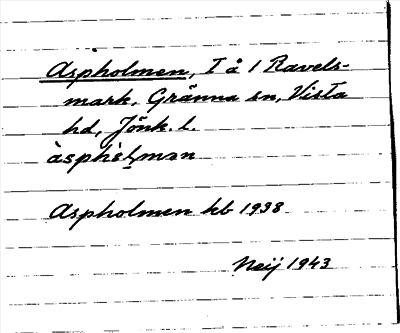 Aspholmen, T å 1 Ravels-
mark, Gränna sn, Vista
hd, Jönk. l.
Aspholmen kb 1938
Neij 1943